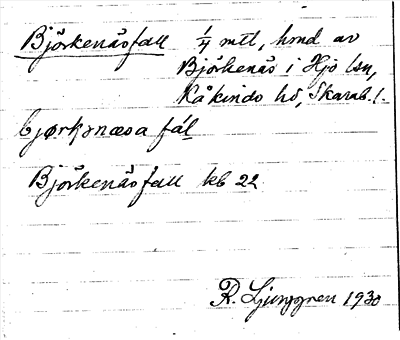 Björkenäsfall 1/4 mtl, hmd av
Björkenäs i Hjo lsn,
Kåkinds hd, Skarab. l.
bjørkənæsa fál
Björkenäsfall kb 22
R. Ljunggren 1930